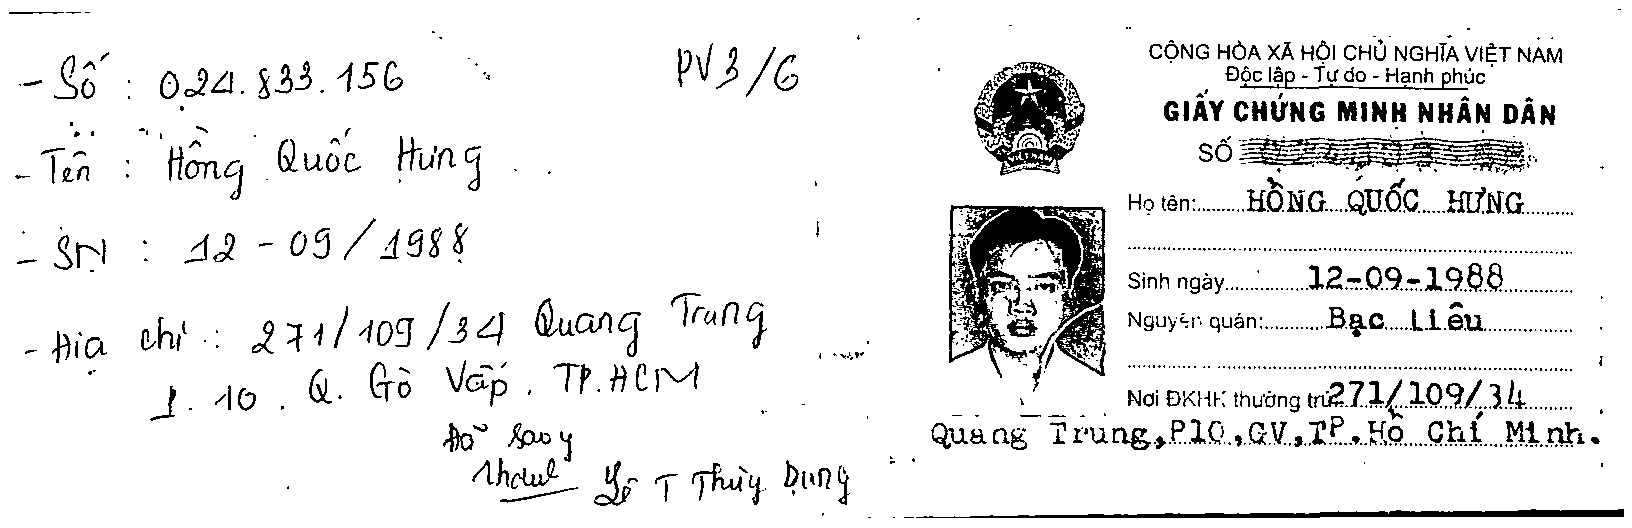 - Số : 024.833.156
PV3/6
- Tên : Hồng Quốc Hưng
- SN : 12 - 09/1988
- Địa chỉ : 271/109/34 Quang Trung
P. 10. Q. Gò Vấp. TP. HCM
Đã sao y
Lê T Thùy Dung
CỘNG HÒA XÃ HỘI CHỦ NGHĨA VIỆT NAM
Độc lập - Tự do - Hạnh phúc
GIẤY CHỨNG MINH NHÂN DÂN
SỐ
VIỆT NAM
Họ tên: HỒNG QUỐC HƯNG
Sinh ngày 12-09-1988
Nguyên quán: Bạc Liêu
Nơi ĐKHK thường trú 271/109/34
Quang Trung,P10,GV,TP.Hồ Chí Minh.